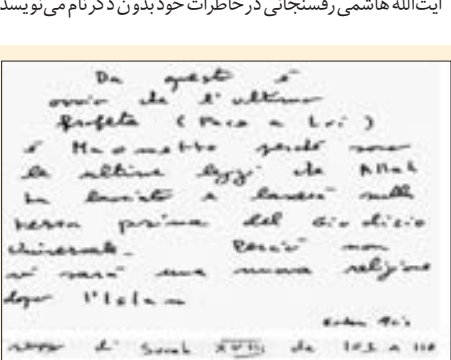 آیت‌الله هاشمی رفسنجانی در خاطرات خود بدون ذکر نام می‌نویسد
Da questo è
ovvio che l'ultimo
Profeta (Pace a Lui)
è Maometto perché sono
le ultime leggi che Allah
ha lasciato e lascerà sulla
terra prima del Giudizio
Universale. Perciò non
vi sarà una nuova religione
dopo l'Islam
di Surah XVIII da 101 a 110